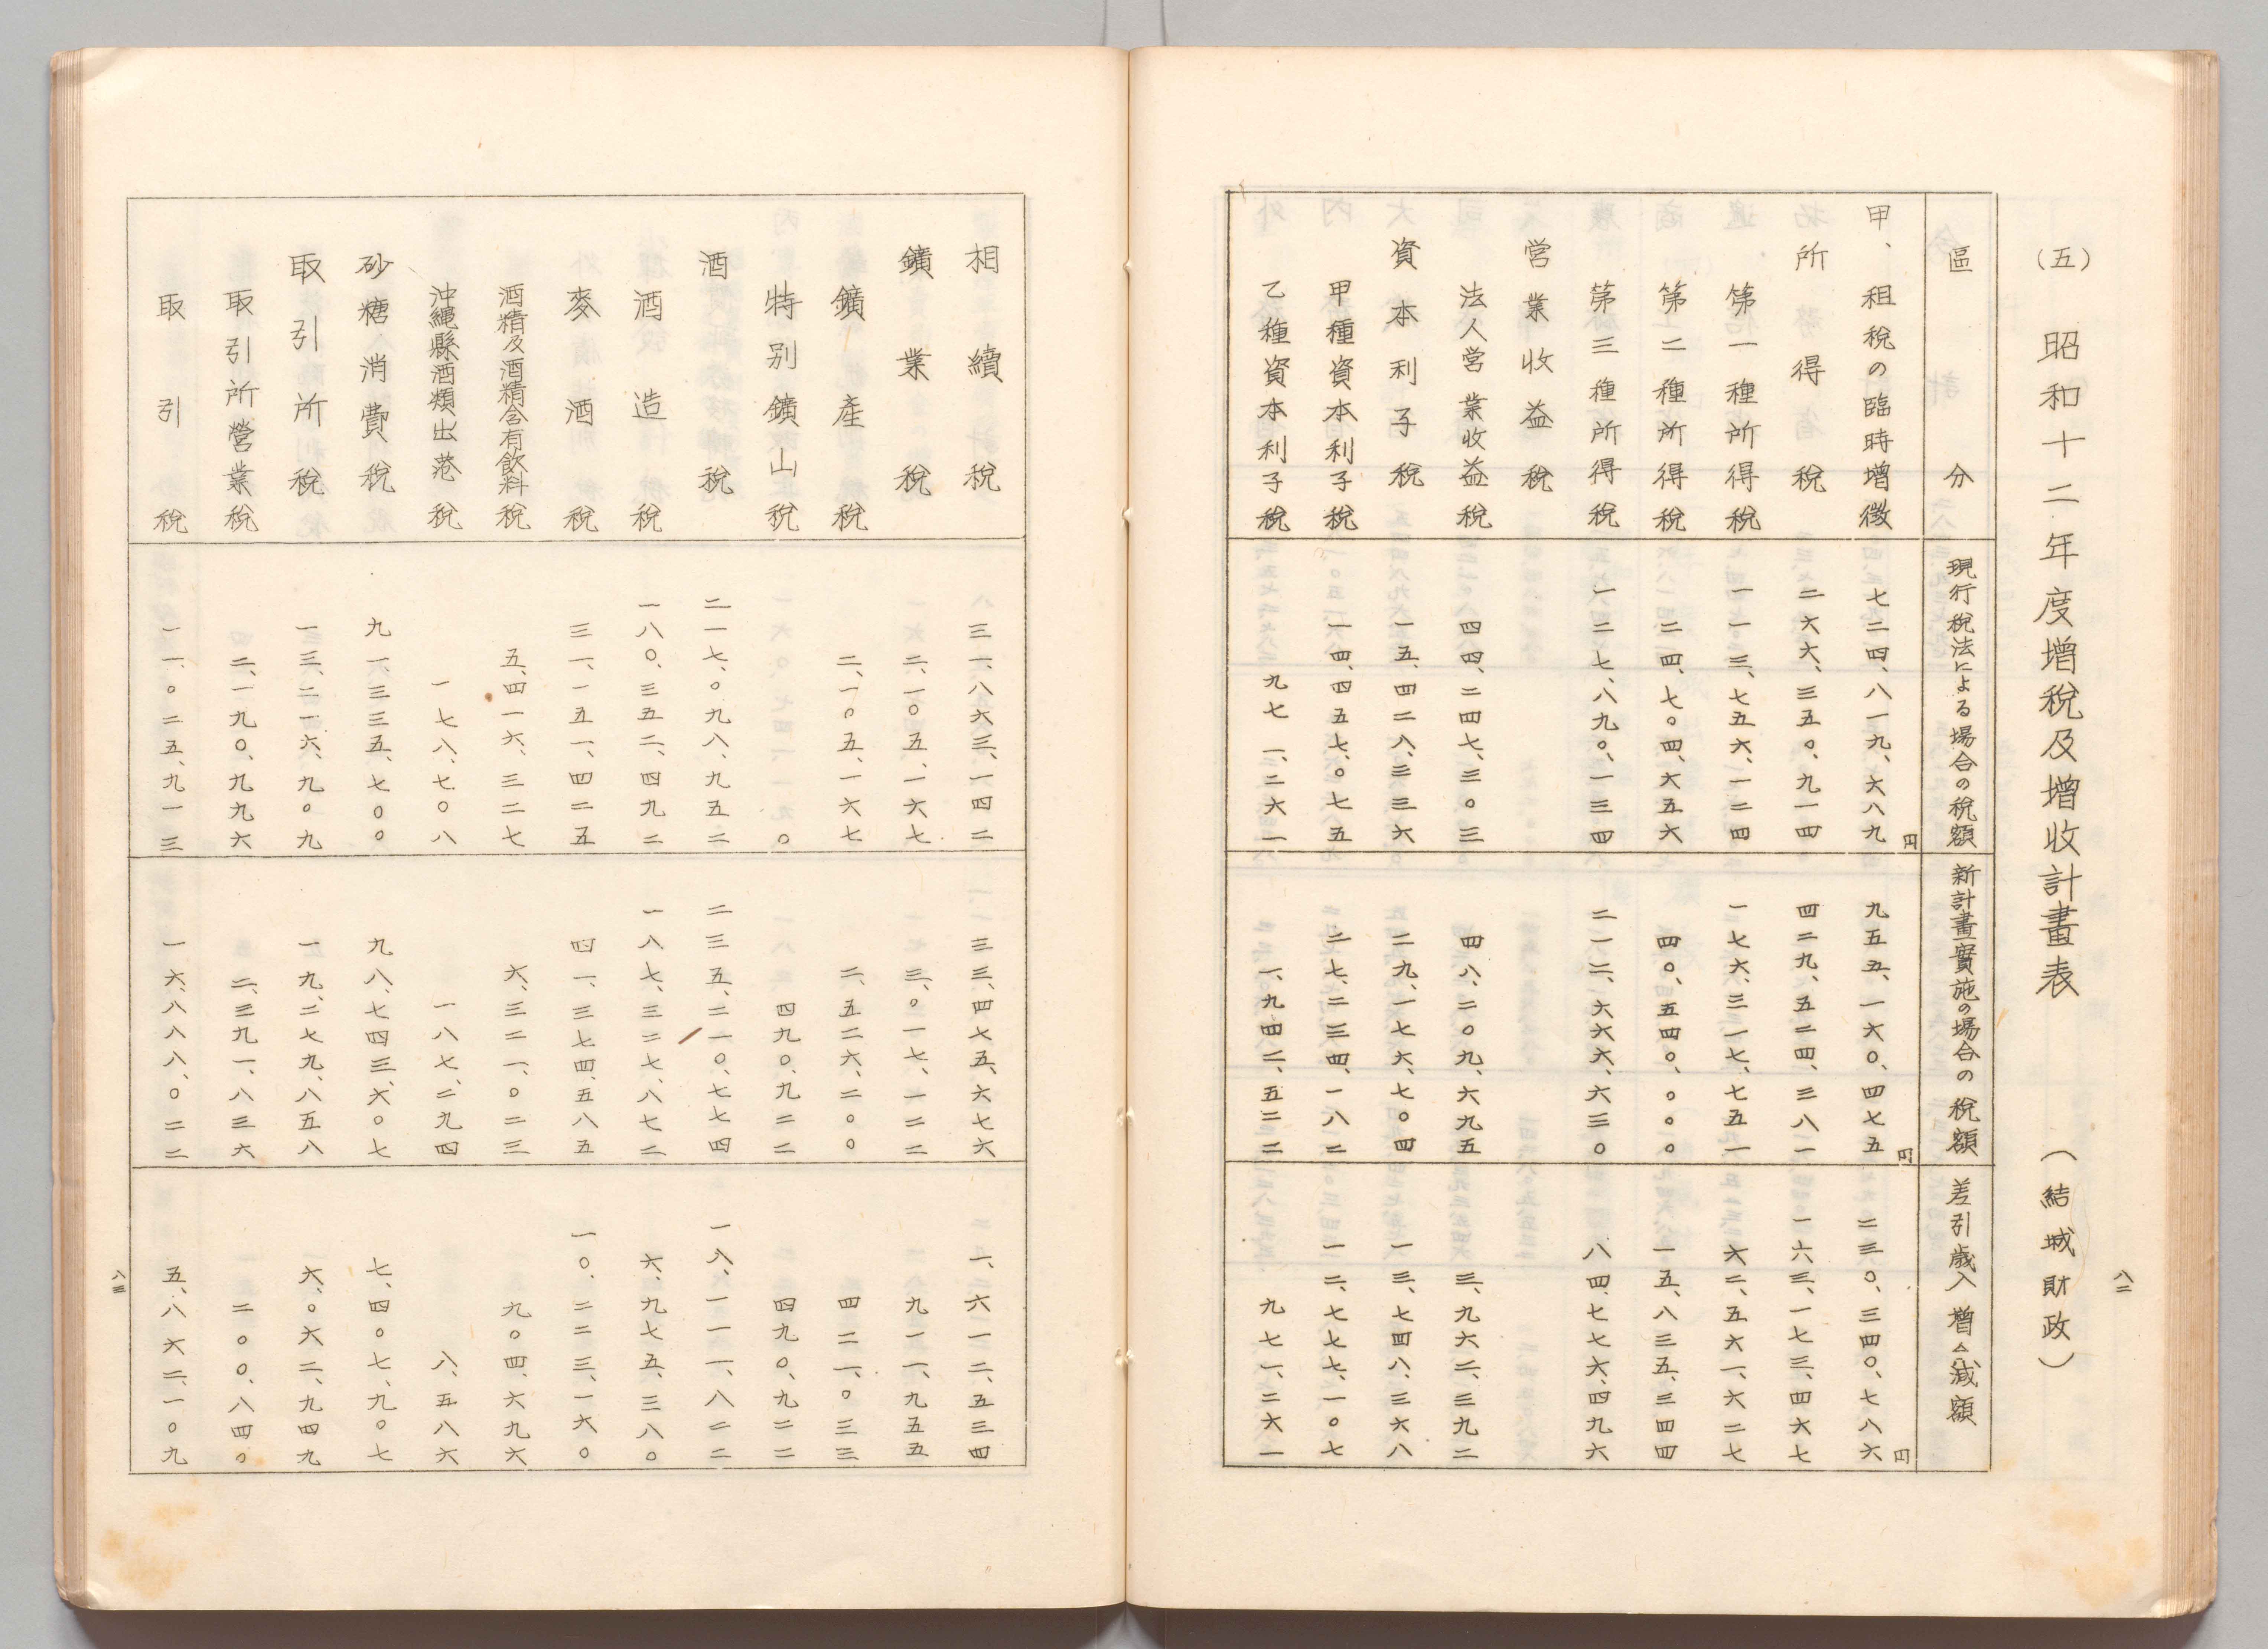 八二
(五) 昭和十二年度増税及増収計畫表 (結城財政)
區分 現行税法による場合の税額 新計畫實施の場合の税額 差引歳入増△減額
円 円 円
甲、租税の臨時増徴 七二四、八一九、六八九 九五五、一六〇、四七五 二三〇、三四〇、七八六
所得税 二六六、三五〇、九一四 四二九、五二四、三八一 一六三、一七三、四六七
第一種所得税 一一三、七五六、一二四 一七六、三一七、七五一 六二、五六一、六二七
第二種所得税 二四、七〇四、六五六 四〇、五四〇、〇〇〇 一五、八三五、三四四
第三種所得税 一二七、八九〇、一三四 二一二、六六六、六三〇 八四、七七六、四九六
営業收益税
法人営業收益税 四四、二四七、三〇三 四八、二〇九、六九五 三、九六二、三九二
資本利子税 一五、四二八、三三六 二九、一七六、七〇四 一三、七四八、三六八
甲種資本利子税 一四、四五七、〇七五 二七、二三四、一八二 一二、七七七、一〇七
乙種資本利子税 九七一、二六一 一、九四二、五二二 九七一、二六一
相續税 三一、八六三、一四二 三三、四七五、六七六 一、六一二、五三四
鑛業税 二、一〇五、一六七 三、〇一七、一二二 九一一、九五五
鑛産税 二、一〇五、一六七 二、五二六、二〇〇 四二一、〇三三
特別鑛山税 〇 四九〇、九二二 四九〇、九二二
酒税 二一七、〇九八、九五二 二三五、二一〇、七七四 一八、一一一、八二二
酒造税 一八〇、三五二、四九二 一八七、三二七、八七二 六、九七五、三八〇
麥酒税 三一、一五一、四二五 四一、三七四、五八五 一〇、二二三、一六〇
酒精及酒精含有飲料税 五、四一六、三二七 六、三二一、〇二三 九〇四、六九六
沖縄縣酒類出港税 一七八、七〇八 一八七、二九四 八、五八六
砂糖消費税 九一、三三五、七〇〇 九八、七四三、六〇七 七、四〇七、九〇七
取引所税 一三、二一六、九〇九 一九、二七九、八五八 六、〇六二、九四九
取引所營業税 二、一九〇、九九六 二、三九一、八三六 二〇〇、八四〇
取引税 一一、〇二五、九一三 一六、八八八、〇二二 五、八六二、一〇九
八三